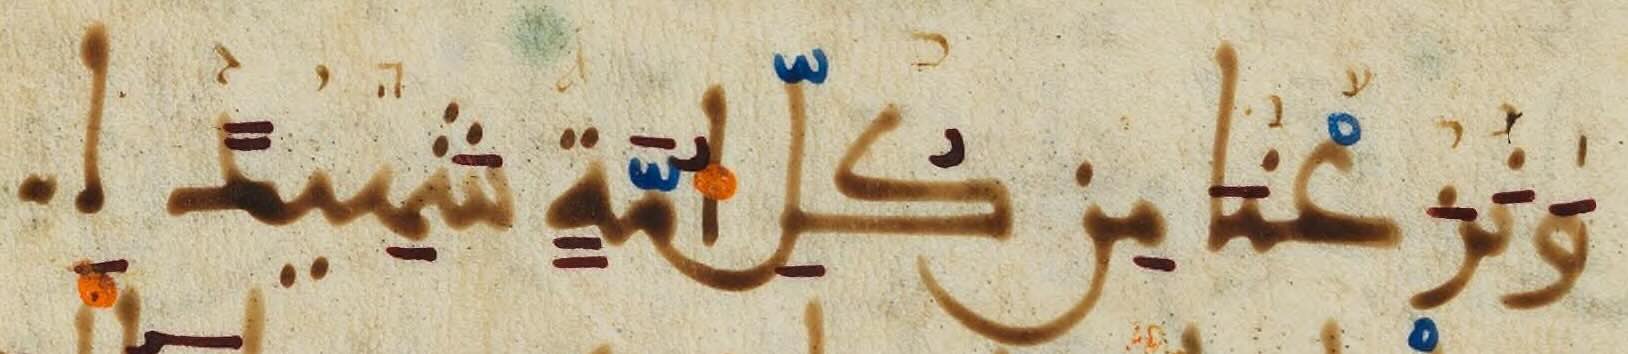 وَنَزَعْنَا مِن كُلِّ أُمَّةٍ شَهِيدًا